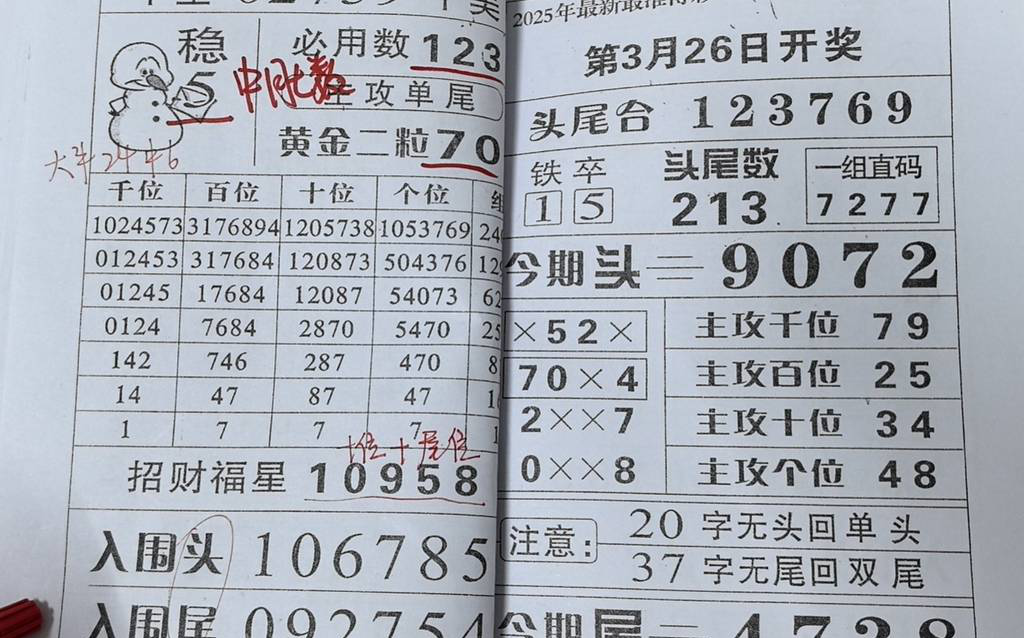 稳
5
必用数 123
主攻单尾
中肚数
黄金二粒 70
大半 2446
千位 百位 十位 个位
1024573 3176894 1205738 1053769
012453 317684 120873 504376
01245 17684 12087 54073
0124 7684 2870 5470
142 746 287 470
14 47 87 47
1 7 7 7
十位+尾位
招财福星 10958
入围头 106785
入围尾 092754
2025年最新最准
第3月26日开奖
头尾合 123769
铁卒
1 5
头尾数
213
一组直码
7277
今期头=9072
×52×
70×4
2××7
0××8
主攻千位 79
主攻百位 25
主攻十位 34
主攻个位 48
注意:
20字无头回单头
37字无尾回双尾
今期尾=4728